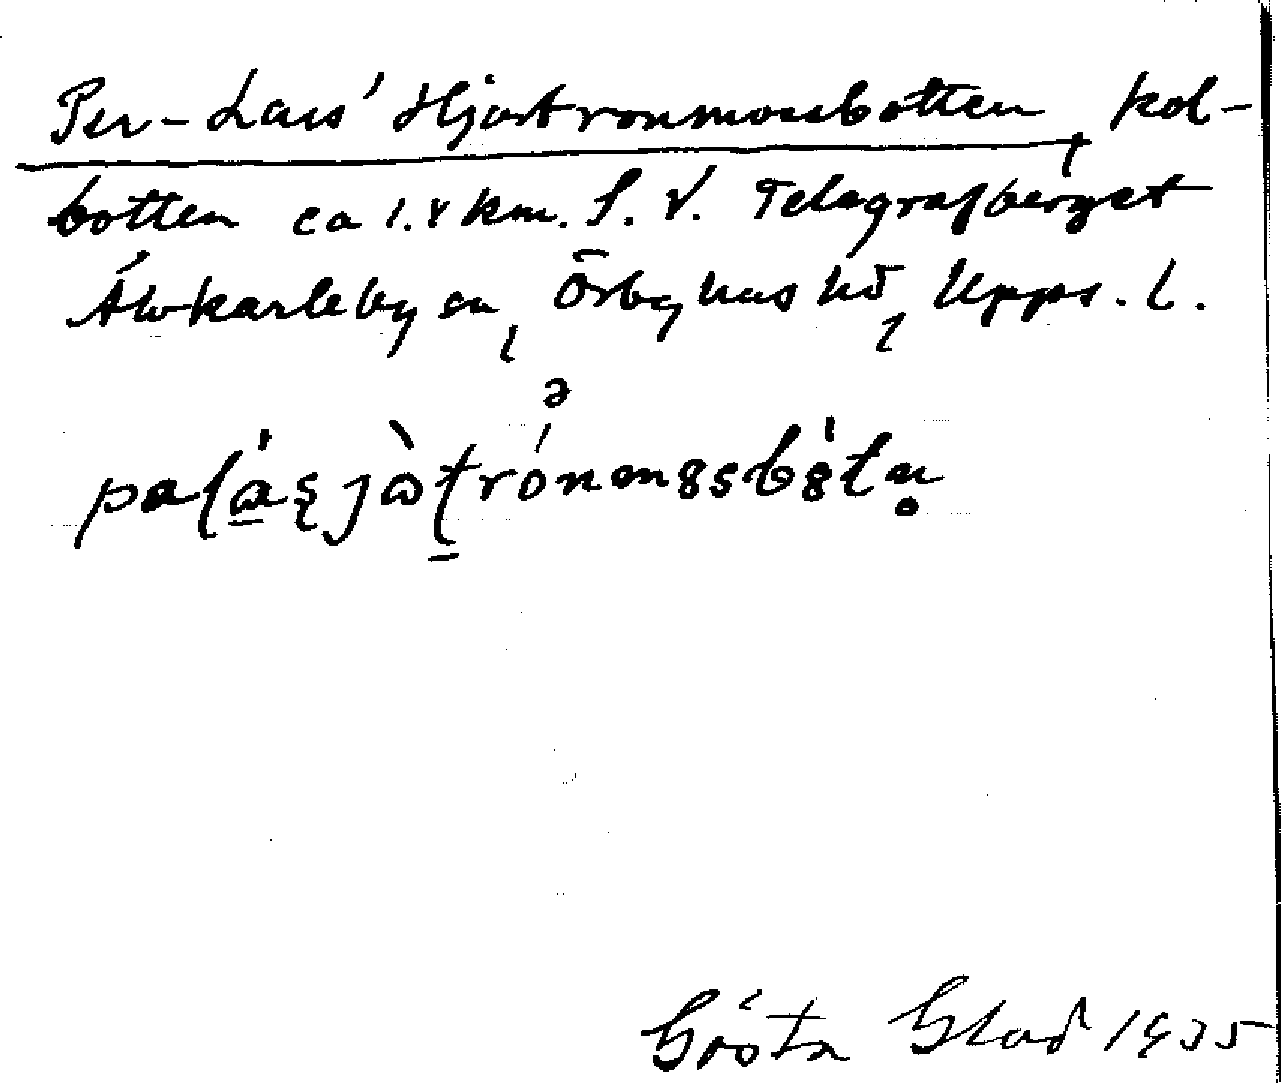 Per-Lars' Hjortronmossbotten, kol-
botten ca 1.8 km. S. V. Telegrafberget
Älvkarleby sn, Örbyhus hd, Upps. l.
Gösta Glad 1935